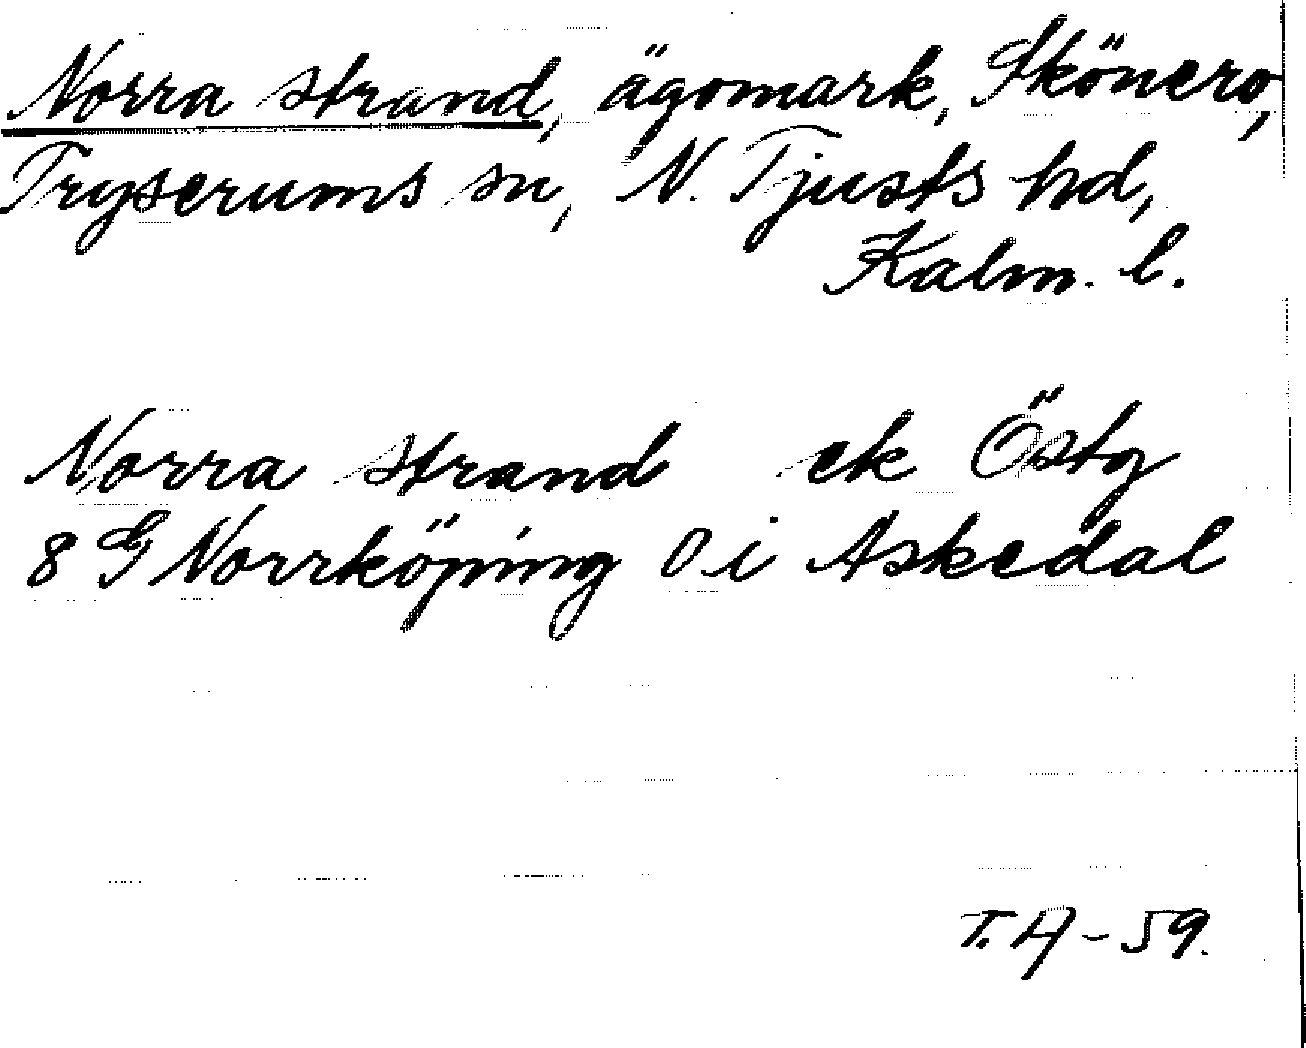 Norra strand, ägomark, Skönero,
Tryserums sn, N. Tjusts hd,
Kalm. l.
Norra strand ek Östg
8 G Norrköping O i Askedal
T.H-59.